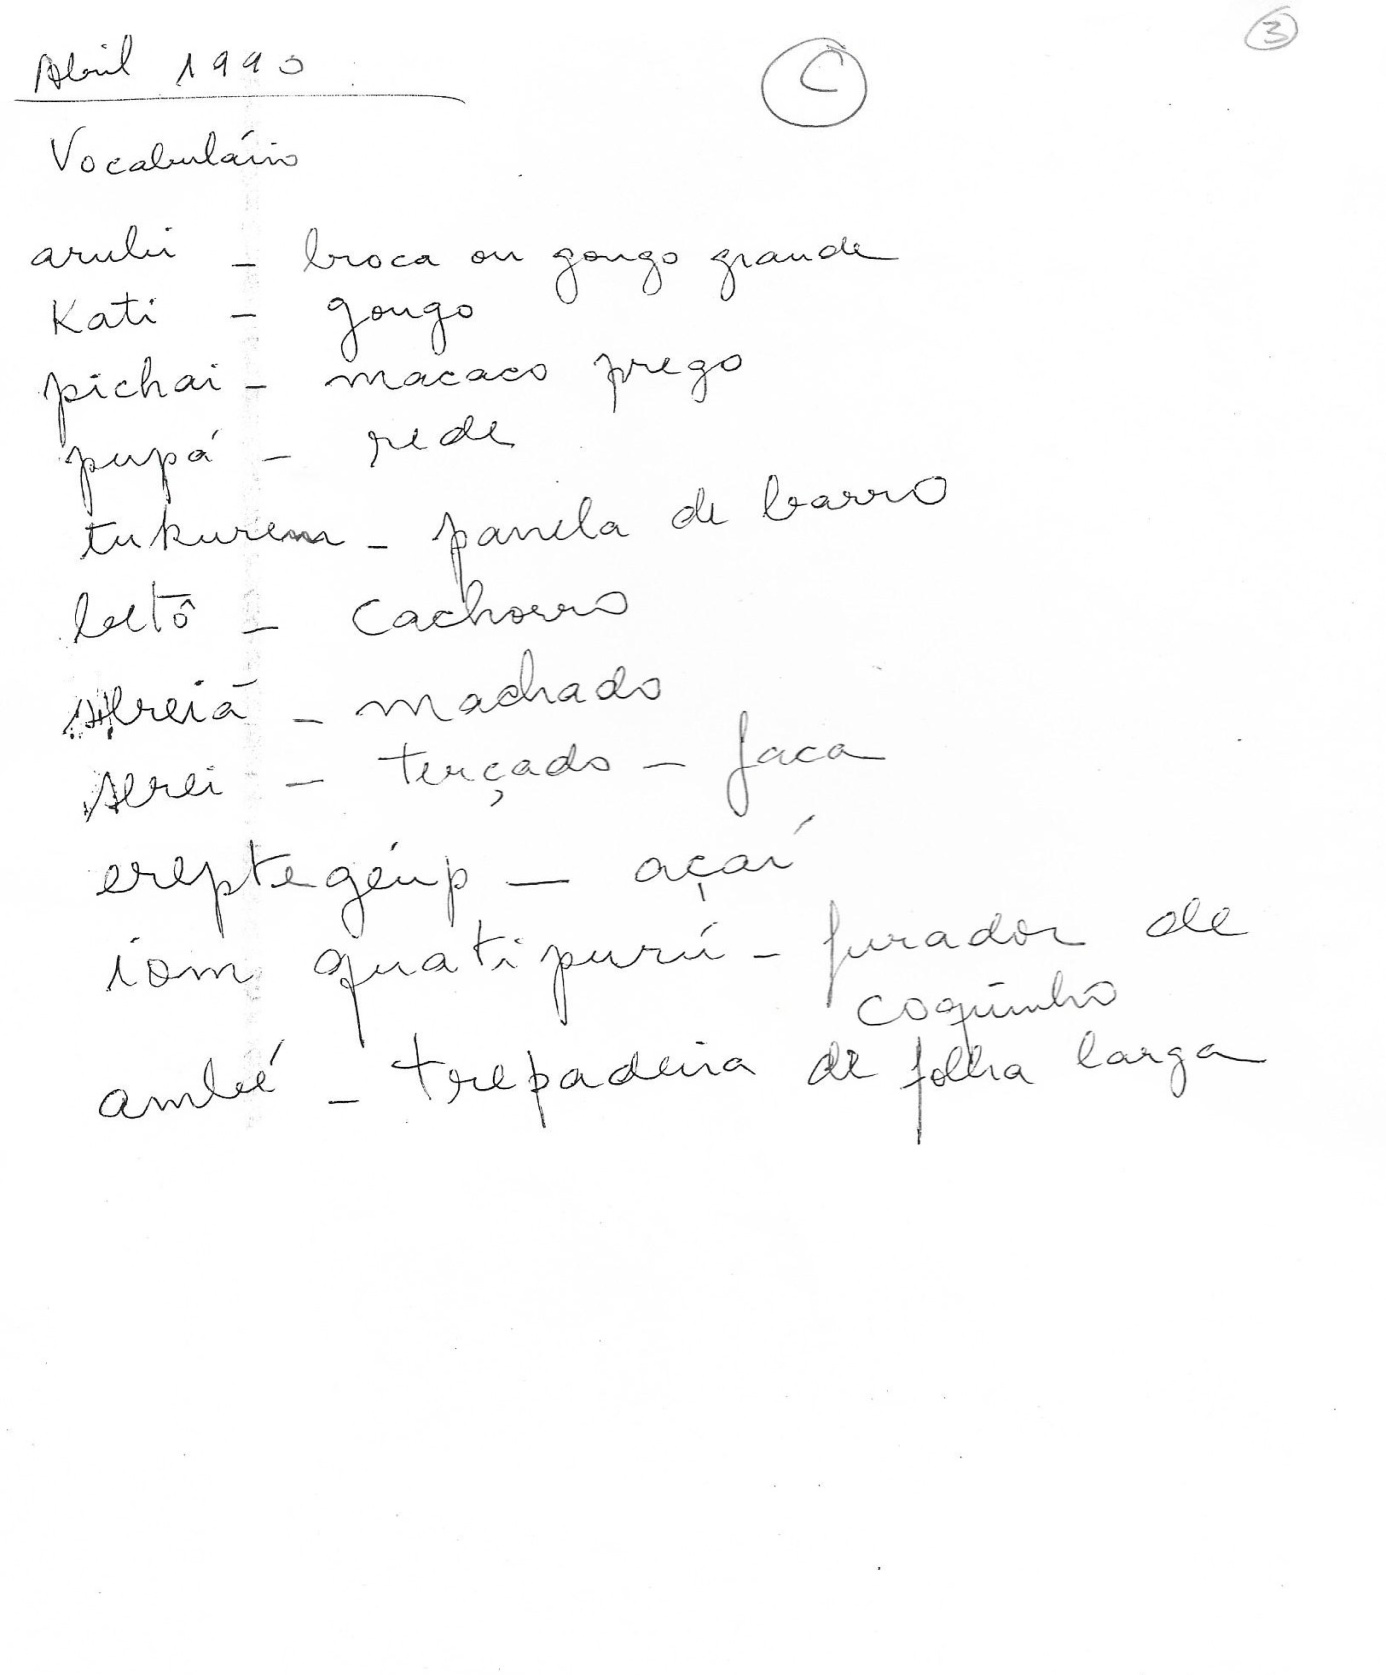 3
Abril 1990
C
Vocabulário
arubi - broca ou gongo grande
Kati - gongo
pichai - macaco prego
pupá - rede
tukurem - panela de barro
- cachorro
- machado
- terçado - faca
ereptegéup - açaí
iom quatipurú - furador de
coquinho
ambé - trepadeira de folha larga